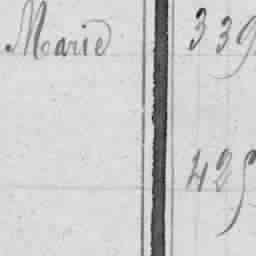 Marie 339
425